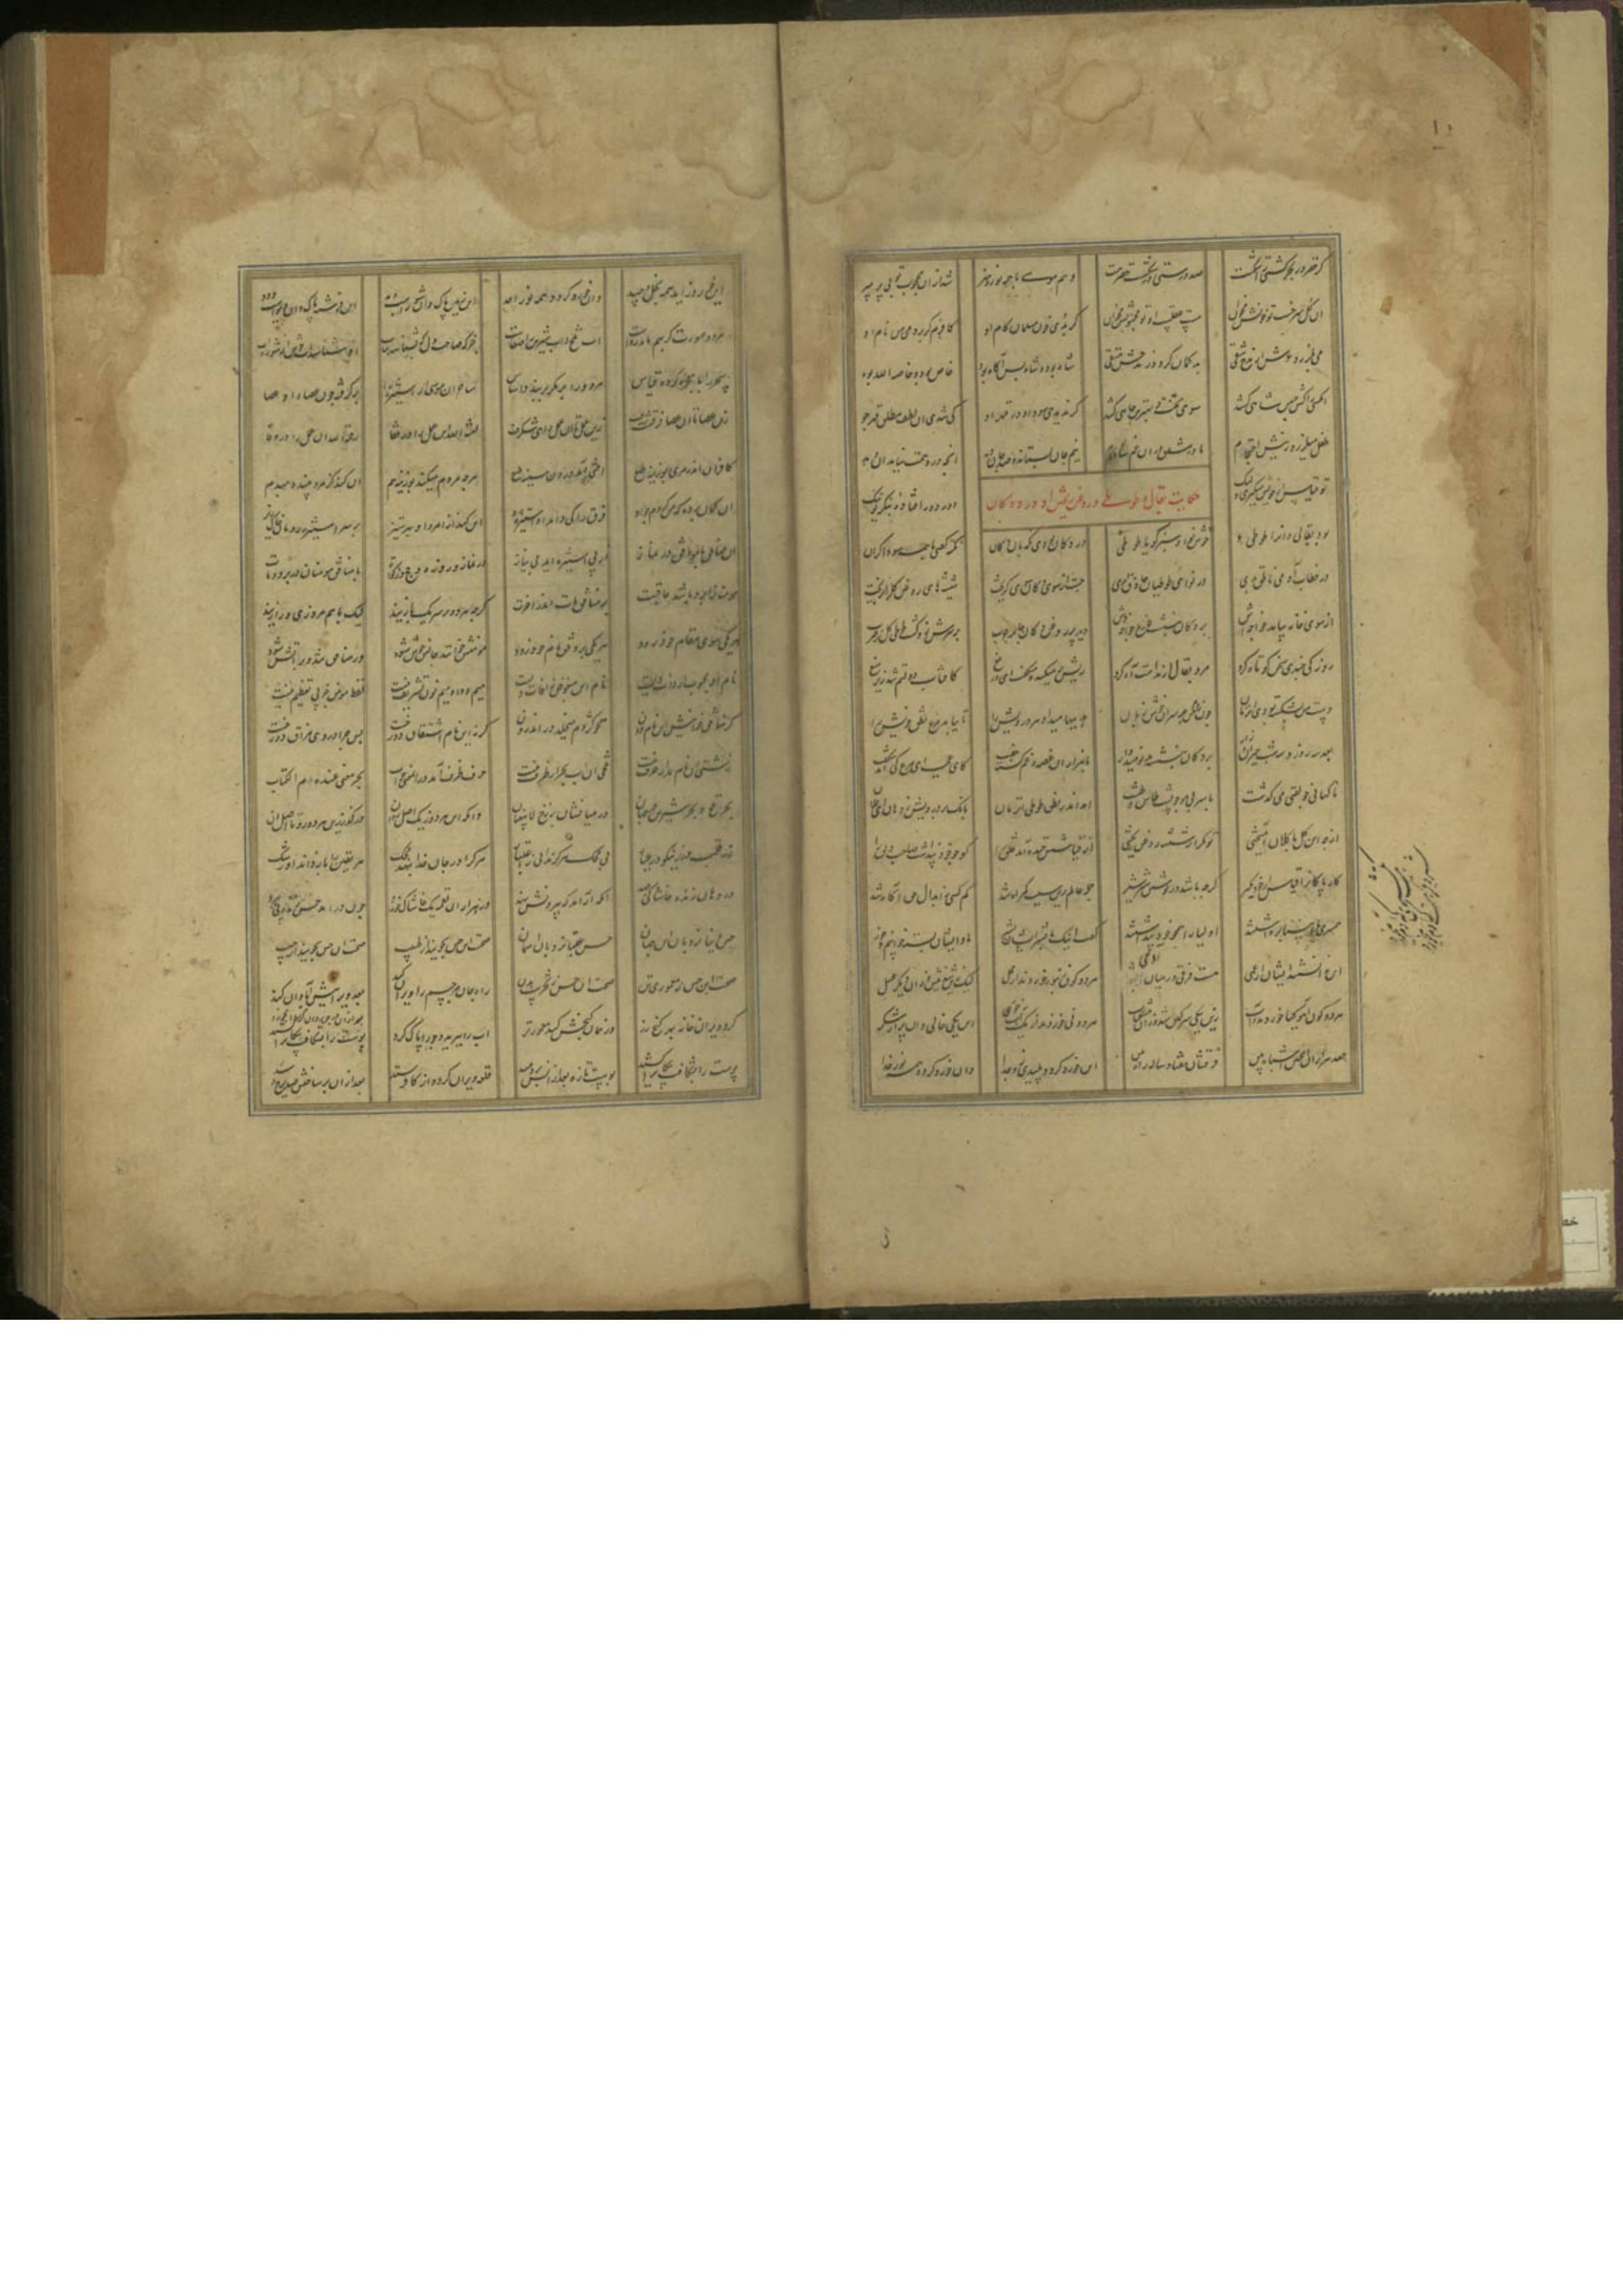 ۱۰
گر خضر در بحر کشتی را شکست صد درستی در شکست خضر هست وهم موسی با همه نور و هنر شد از آن محجوب تو بی پر مپر
آن گل سرخست تو خونش مخوان مست عقلست او تو مجنونش مخوان گر بدی خون مسلمان کام او کافرم گر بردمی من نام او
می بلرزد عرش از مدح شقی بد گمان گردد ز مدحش متقی شاه بود و شاه بس آگاه بود خاص بود و خاصه الله بود
آن کسی را کش چنین شاهی کشد سوی تخت و بهترین جاهی کشد گر ندیدی سود او در قهر او کی شدی آن لطف مطلق قهر جو
طفل میلرزد ز نیش احتجام مادر مشفق در آن غم شادکام نیم جان بستاند و صد جان دهد انچه در وهمت نیاید آن دهد
تو قیاس از خویش میگیری ولیک دور دور افتاده بنگر تو نیک
حکایت بقال و طوطی و روغن ریختن او در دوکان
بود بقالی و او را طوطیی خوش نوا و سبز گویا طوطیی در دکان بودی نگهبان دکان نکته گفتی با همه سوداگران
در خطاب آدمی ناطق بدی در نوای طوطیان حاذق بدی جست از سوی دکان سویی گریخت شیشه های روغن گل را بریخت
از سوی خانه بیامد خواجه اش بر دکان بنشست فارغ خواجه وش دید پر روغن دکان و جامه چرب بر سرش زد گشت طوطی کل ز ضرب
روزکی چندی سخن کوتاه کرد مرد بقال از ندامت آه کرد ریش بر میکند و میگفت ای دریغ کافتاب نعمتم شد زیر میغ
دست من بشکسته بودی آن زمان چون زدم من بر سر آن خوش زبان هدیه ها میداد هر درویش را تا بیابد نطق مرغ خویش را
بعد سه روز و سه شب حیران و زار بر دکان بنشسته بد نومیدوار با هزاران غصه و غم گشته جفت کای عجب این مرغ کی آید بگفت
ناگهانی جولقی می گذشت با سر بی مو چو پشت طاس و طشت آمد اندر نطق طوطی آن زمان بانگ بر درویش زد
از چه ای کل با کلان آمیختی تو مگر از شیشه روغن ریختی از قیاسش خنده آمد خلق را کو چو خود پنداشت صاحب دلق را
کار پاکان را قیاس از خود مگیر گرچه باشد در نوشتن شیر شیر جمله عالم زین سبب گمراه شد کم کسی ز ابدال حق آگاه شد
همسری با انبیا برداشتند اولیا را همچو خود پنداشتند گفت اینک ما بشر ایشان بشر ما و ایشان بسته خوابیم و خور
این ندانستند ایشان از عمی هست فرقی در میان هر دو گون زنبور خوردند از محل لیک شد زان نیش و زین دیگر عسل
هر دو گون آهو گیا خوردند و آب زین یکی سرگین شد و زان مشک ناب هر دو نی خوردند از یک آبخور این یکی خالی و آن پر از شکر
صد هزاران این چنین اشباه بین فرقشان هفتاد ساله راه بین این خورد گردد پلیدی زو جدا وان خورد گردد همه نور خدا
این خورد زاید همه بخل و حسد وان خورد گردد همه نور احد این زمین پاک و آن شورست و بد این فرشته پاک و آن دیوست و دد
هر دو صورت گر بهم ماند رواست آب تلخ و آب شیرین را صفاست جز که صاحب ذوق که شناسد بیاب او شناسد آب خوش از شوره آب
سحر را با معجزه کرده قیاس هر دو را بر مکر پندارد اساس ساحران موسی از استیزه را بر گرفته چون عصای او عصا
زین عصا تا آن عصا فرقیست ژرف زین عمل تا آن عمل راهی شگرف لعنة الله این عمل را در قفا رحمة الله آن عمل را در وفا
کافران اندر مری بوزینه طبع آفتی آمد درون سینه طبع هر چه مردم میکند بوزینه هم آن کند کز مرد بیند دم بدم
او گمان برده که من کردم چو او فرق را کی داند آن استیزه رو این کند از امر و او بهر ستیز بر سر استیزه رویان خاک ریز
آن منافق با موافق در نماز از پی استیزه آید نی نیاز در نماز و روزه و حج و زکات با منافق مومنان در برد و مات
مومنان را برد باشد عاقبت بر منافق مات اندر آخرت گرچه هر دو بر سر یک بازیند لیک با هم مروزی و رازیند
هر یکی سوی مقام خود رود هر یکی بر وفق نام خود رود مومنش خوانند جانش خوش شود ور منافق تند و پر آتش شود
نام او محبوب از ذات ویست نام این مبغوض از آفات ویست میم و واو و میم و نون تشریف نیست لفظ مومن جز پی تعریف نیست
گر منافق خوانیش این نام دون همچو کژدم میخلد در اندرون گرنه این نام اشتقاق دوزخست پس چرا در وی مذاق دوزخست
زشتی آن نام بد از حرف نیست تلخی آن آب بحر از ظرف نیست حرف ظرف آمد درو معنی چو آب بحر معنی عنده ام الکتاب
بحر تلخ و بحر شیرین در جهان در میانشان برزخ لا یبغیان وانکه این هر دو ز یک اصلی روان در گذر زین هر دو رو تا اصل آن
زر قلب و زر نیکو در عیار بی محک هرگز ندانی ز اعتبار هر کرا در جان خدا بنهد محک هر یقین را باز داند او ز شک
در دهان زنده خاشاکی جهد آنگه آرامد که بیرونش نهد در هزاران لقمه یک خاشاک خورد چون در آمد حس زنده پی ببرد
حس دنیا نردبان این جهان حس عقبی نردبان آسمان صحت این حس بجویید از طبیب صحت آن حس بجویید از حبیب
صحت این حس ز معموری تن صحت آن حس ز تخریب بدن راه جان مر جسم را ویران کند بعد ویرانیش آبادان کند
کرد ویران خانه بهر گنج زر وز همان گنجش کند معمورتر آب را ببرید و جو را پاک کرد بعد از آن در جو روان کرد آبخورد
پوست را بشکافت پیکان را کشید پوست تازه بعد از آنش بر دمید قلعه ویران کرد و از کافر ستد بعد از آن بر ساختش صد برج و سد